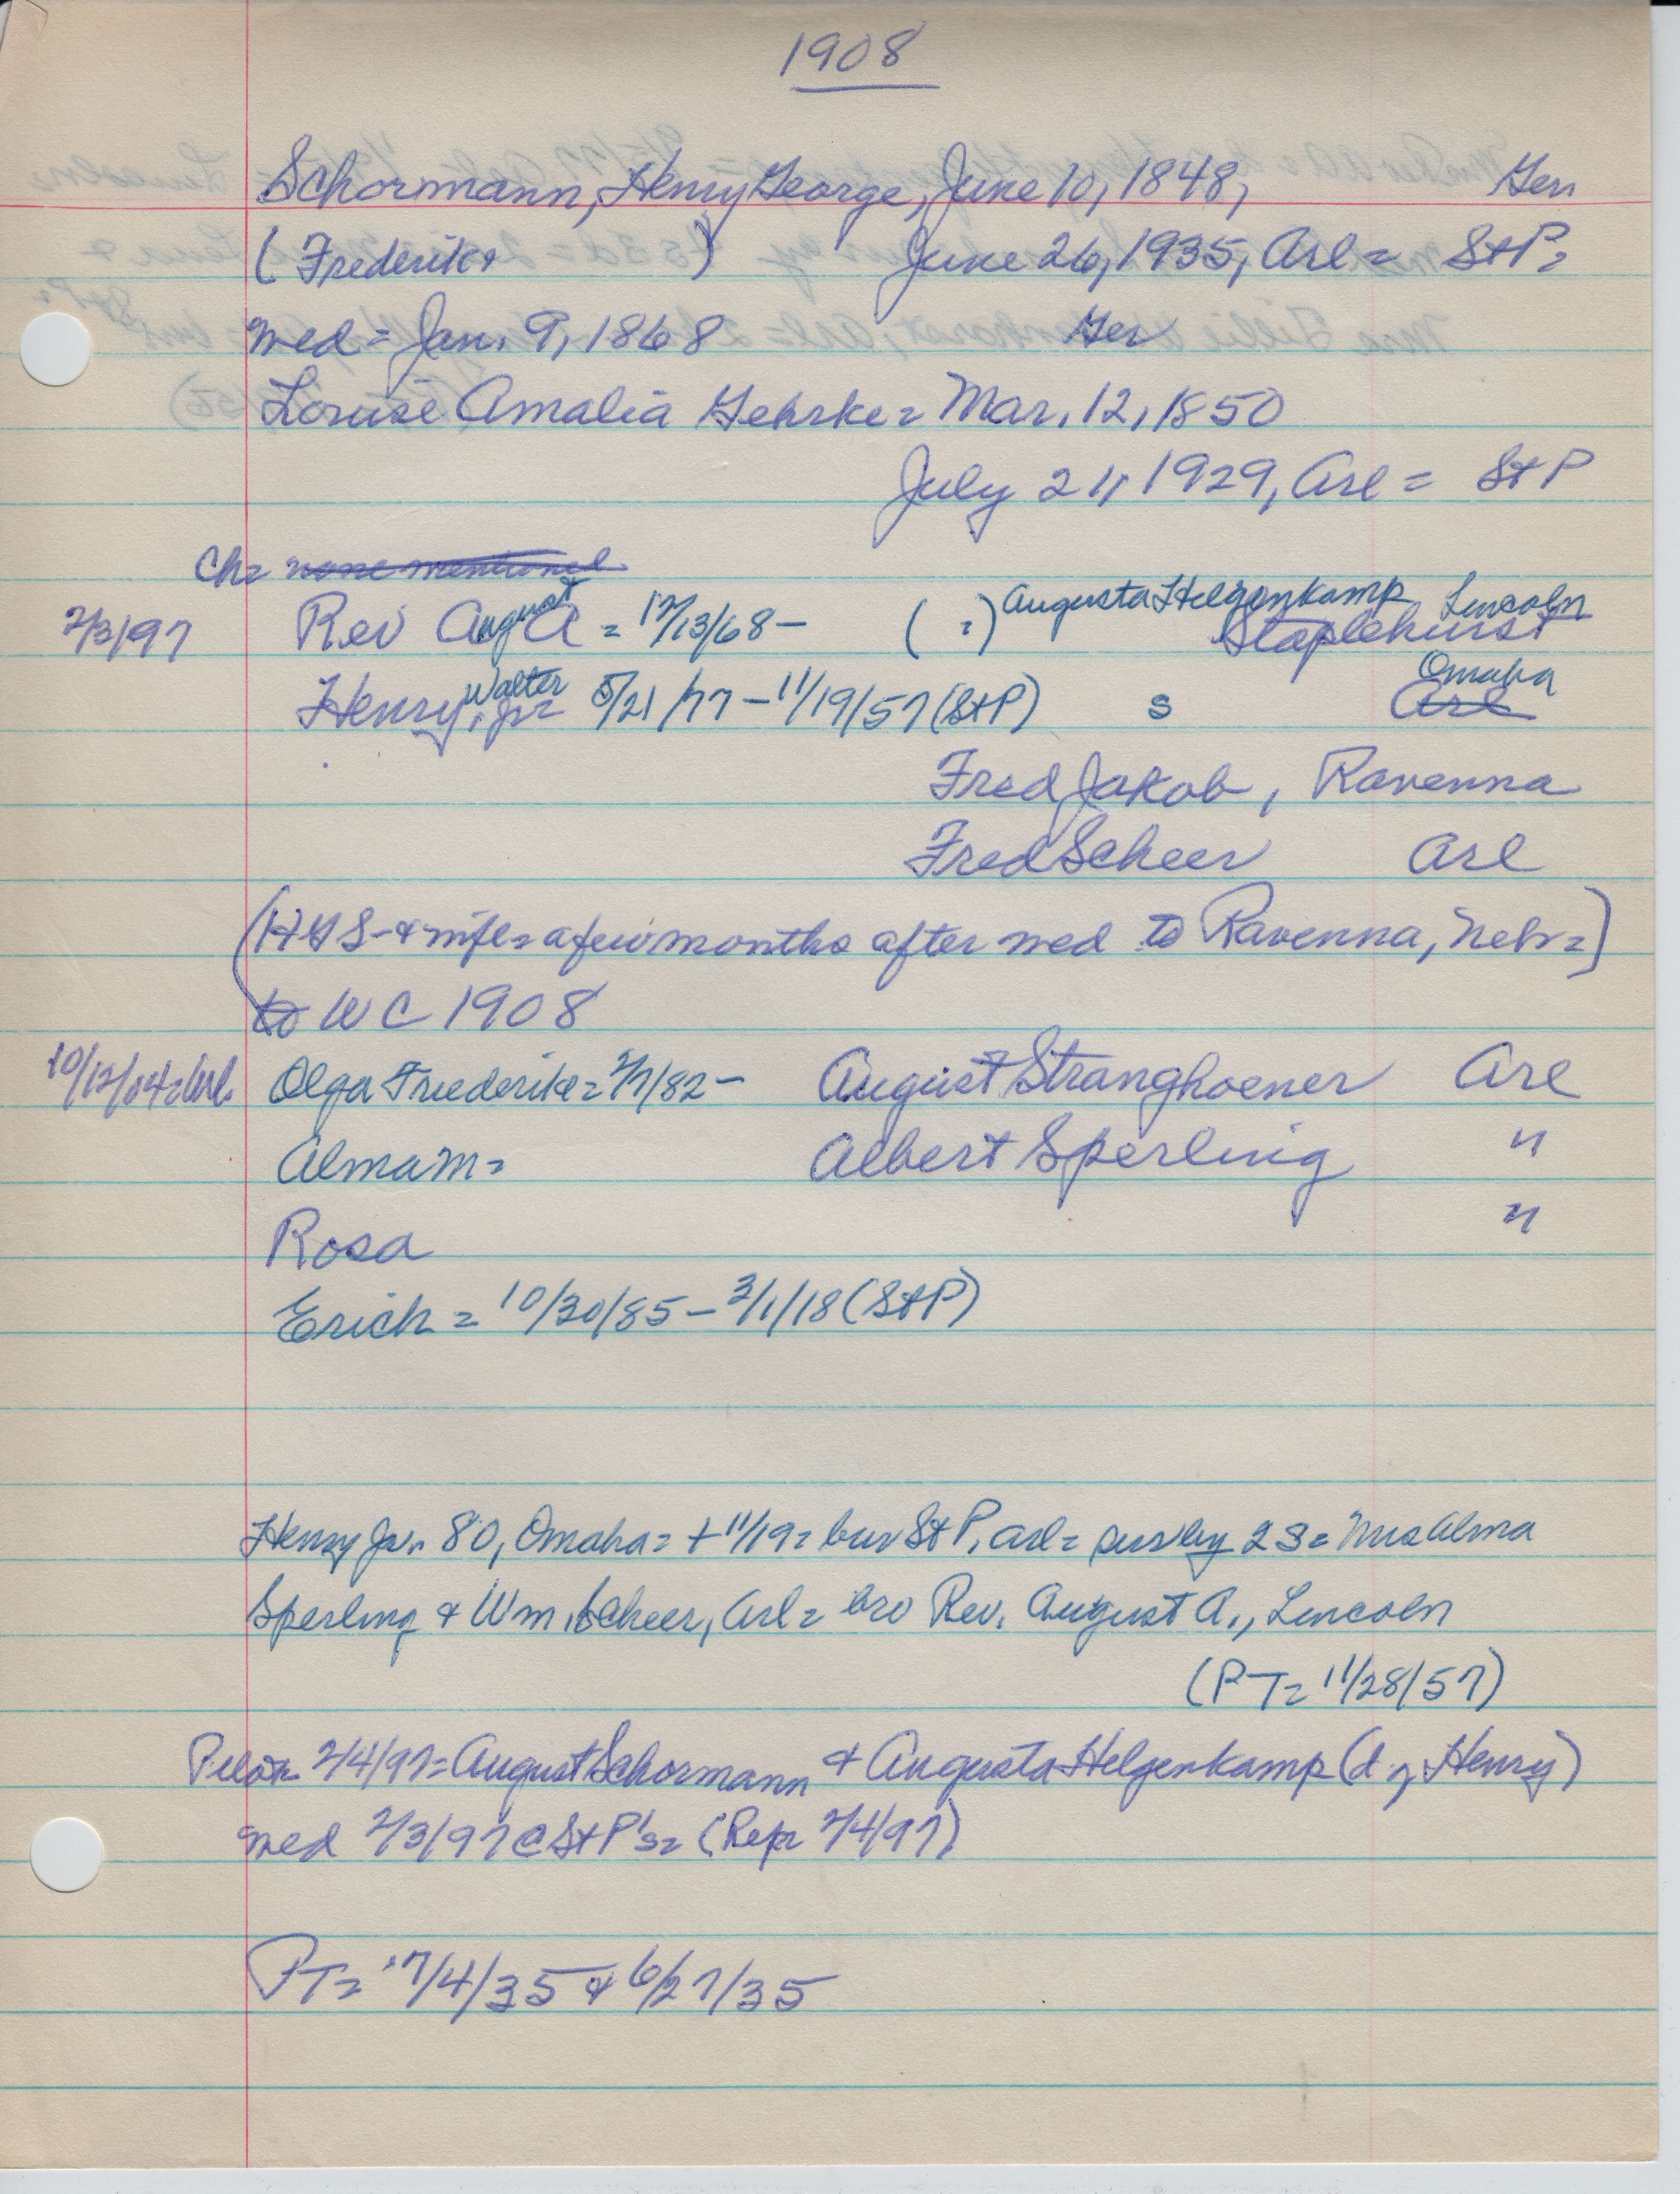 1908
Schormann, Henry George, June 10, 1848, Ger
(Frederik & ) June 26, 1935, Arl = St P=
med = Jan. 9, 1868 Ger
Louise Amalia Gehrke = Mar. 12, 1850
July 21, 1929, Arl = St P
Ch= none mentioned
2/3/97 Rev August A = 12/13/68 - ( = ) Augusta Helgenkamp Staplehurst Lincoln
Henry Walter, Jr= 5/21/77 - 11/19/57 (St P) s Arl Omaha
Fred Jakob, Ravenna
Fred Scheer Arl
(HGS & wife = a few months after med to Ravenna, Nebr=)
to WC 1908
10/12/04 = Arl. Olga Friederike = 2/7/82 - August Stranghoener Arl
Alma M = Albert Sperling "
Rosa "
Erich = 10/30/85 - 3/1/18 (St P)
Henry Jr. 80, Omaha = + 11/19 = bur St P, Arl = sur by 2 s = Mrs Alma
Sperling & Wm. Scheer, Arl = bro Rev. August A., Lincoln
(PT= 11/28/57)
Pilot 2/4/97 = August Schormann & Augusta Helgenkamp (d of Henry)
med 2/3/97 @ St P's = (Repr 2/4/97)
PT= 7/4/35 & 6/27/35